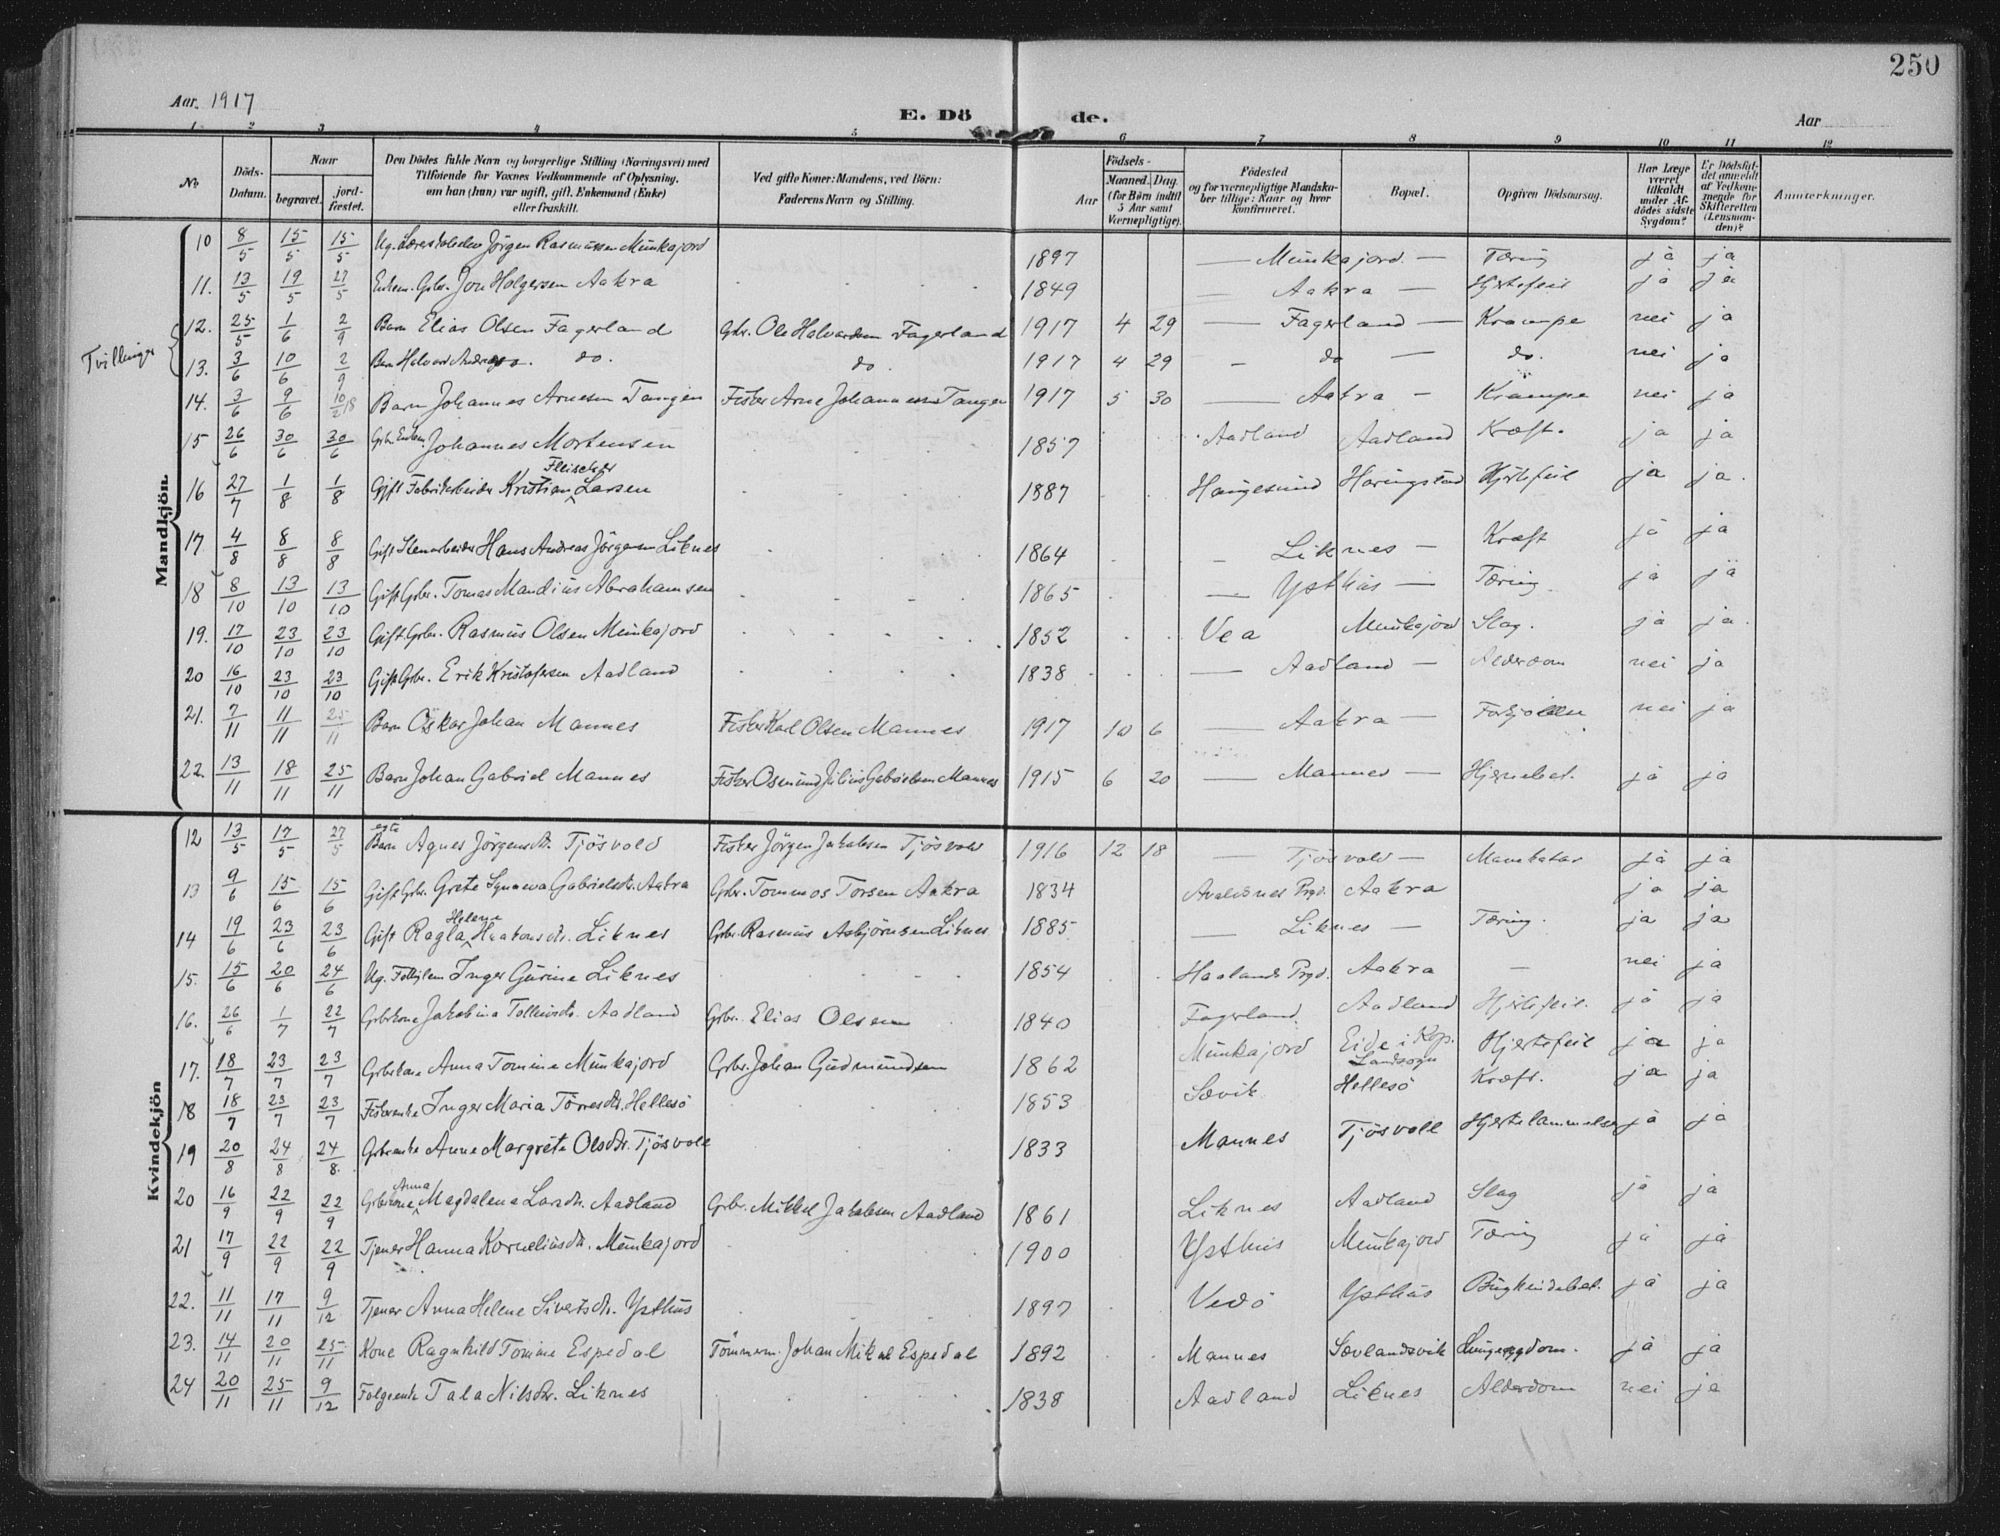 250
Aar. 1917
E. Dö de.
Aar
1 2 3 4 5 6 7 8 9 10 11 12
No
Döds-Datum.
Naar
begravet.
jord-fæstet.
Den Dödes fulde Navn og borgerlige Stilling (Næringsvei) med Tilföiende for Voxnes Vedkommende af Oplysning, om han (hun) var ugift, gift, Enkemand (Enke) eller fraskilt.
Ved gifte Koner: Mandens, ved Börn: Faderens Navn og Stilling.
Födsels-
Aar
Maaned. Dag.
(for Børn indtil 5 Aar samt Værnepligtige).
Födested og for værnepligtige Mandska-ber tillige: Naar og hvor konfirmeret.
Bopæl.
Opgiven Dödsaarsag.
Har Læge været tilkaldt under Af-dödes sidste Sygdom?
Er Dödsfal-det anmeldt af Vedkom-mende for Skifteretten (Lensman-den)?
Anmærkninger.
Mandkjön.
10 8/5 15/5 15/5 Ug. Jörgen Rasmussen Munkajord 1897 — Munkajord — Tæring ja ja
11. 13/5 19/5 27/5 Enkem. Gbr. Jon Holgersen Aakra 1849 — Aakra — Hjertefeil ja ja
Tvillinger
12. 25/5 1/6 2/9 Barn Elias Olsen Fagerland Gbr. Ole Halvardsen Fagerland 1917 4 29 — Fagerland — Krampe nei ja
13. 3/6 10/6 2/9 Barn Halvard do. do 1917 4 29 - do — do. nei ja
14. 3/6 9/6 10/2 18 Barn Johannes Arnesen Tangen Fisker Arne Johannessen Tangen 1917 5 30 — Aakra — Krampe nei ja
15 26/6 30/6 30/6 Gbr. Enkem. Johannes Mortensen 1857 Aadland Aadland Kræft. ja ja
Fleischer
16 27/7 1/8 1/8 Gift Fabrikarbeider Kristian Larsen 1887 Haugesund Haringstad Hjertefeil ja ja.
17. 4/8 8/8 8/8 Gift Stenarbeider Hans Andreas Jörgensen Liknes 1864 - Liknes — Kræft ja ja
18 8/10 13/10 13/10 Gift Gbr. Tomas Mandius Abrahamsen 1865 — Ysthus — Tæring ja ja
19. 17/10 23/10 23/10 Gift. Gbr. Rasmus Olsen Munkajord 1852 Vea Munkajord Slag. ja ja.
20 16/10 23/10 23/10 Gift Gbr. Erik Kristofersen Aadland 1838 — Aadland — Alderdom nei ja
21. 7/11 11/11 25/11 Barn Oskar Johan Mannes Fisker Karl Olsen Mannes 1917 10 6 — Aakra — nei ja
22. 13/11 18/11 25/11 Barn Johan Gabriel Mannes Fisker Osmund Julius Gabrielsen Mannes 1915 6 20 — Mannes — Hjernebet. ja ja
Kvindekjön
egte
12 13/5 17/5 27/5 Barn Agnes Jörgensdtr. Tjösvold Fisker Jörgen Jakobsen Tjösvold 1916 12 18 — Tjösvold — ja ja
13 9/6 15/6 15/6 Gift Gbr. Grete Synneva Gabrielsdtr. Aakra Gbr. Tommos Torsen Aakra 1834 Avaldsnes Prgd. Aakra ja ja
Helene
14 19/6 23/6 23/6 Gift Ragla Haakonsdtr. Liknes Gbr. Rasmus Asbjörnsen Liknes 1885 — Liknes — Tæring. ja ja
15. 15/6 20/6 24/6 Ug. Inger Gurine Liknes 1854 Haalands Prgd. Aakra — nei ja
16. 26/6 1/7 22/7 Gbrkone Jakobina Tollevsdtr. Aadland Gbr. Elias Olsen 1840 Fagerland Aadland Hjertefeil. ja ja
17. 18/7 23/7 23/7 Gbrkone Anna Tomine Munkajord Gbr. Johan Gudmundsen 1862 Munkajord Eide i Kop. Landsogn Hjertefeil ja ja
18 18/7 23/7 23/7 Fiskerenke Inger Maria Tönnesdtr. Hellesö 1853 Sævik Hellesö Kræft. ja ja
19 20/8 24/8 24/8. Gbrenke Anne Margrete Olsdtr. Tjösvoll 1833 Mannes Tjösvoll Hjertelammelse ja ja
Anna
20 16/9 22/9 22/9 Gbrkone Magdalena Larsdtr. Aadland Gbr. Mikkel Jakobsen Aadland 1861 Liknes Aadland Slag ja ja
21 17/9 22/9 22/9 Tjener Hanna Korneliusdtr. Munkajord 1900 Ysthus Munkajord Tæring ja ja
22. 11/11 17/11 9/12 Tjener Anna Helene Sivertsdtr. Ysthus 1897 Vedö Ysthus Bughindebet. ja ja
23. 14/11 20/11 25/11 Kone Ragnhild Tomine Espedal Tömmerm. Johan Mikal Espedal 1892 Mannes Sævlandsvik Lungesygdom. ja ja
24 20/11 25/11 9/12 Folgeenke Tala Nilsdtr. Liknes 1838 Aadland Liknes Alderdom nei ja